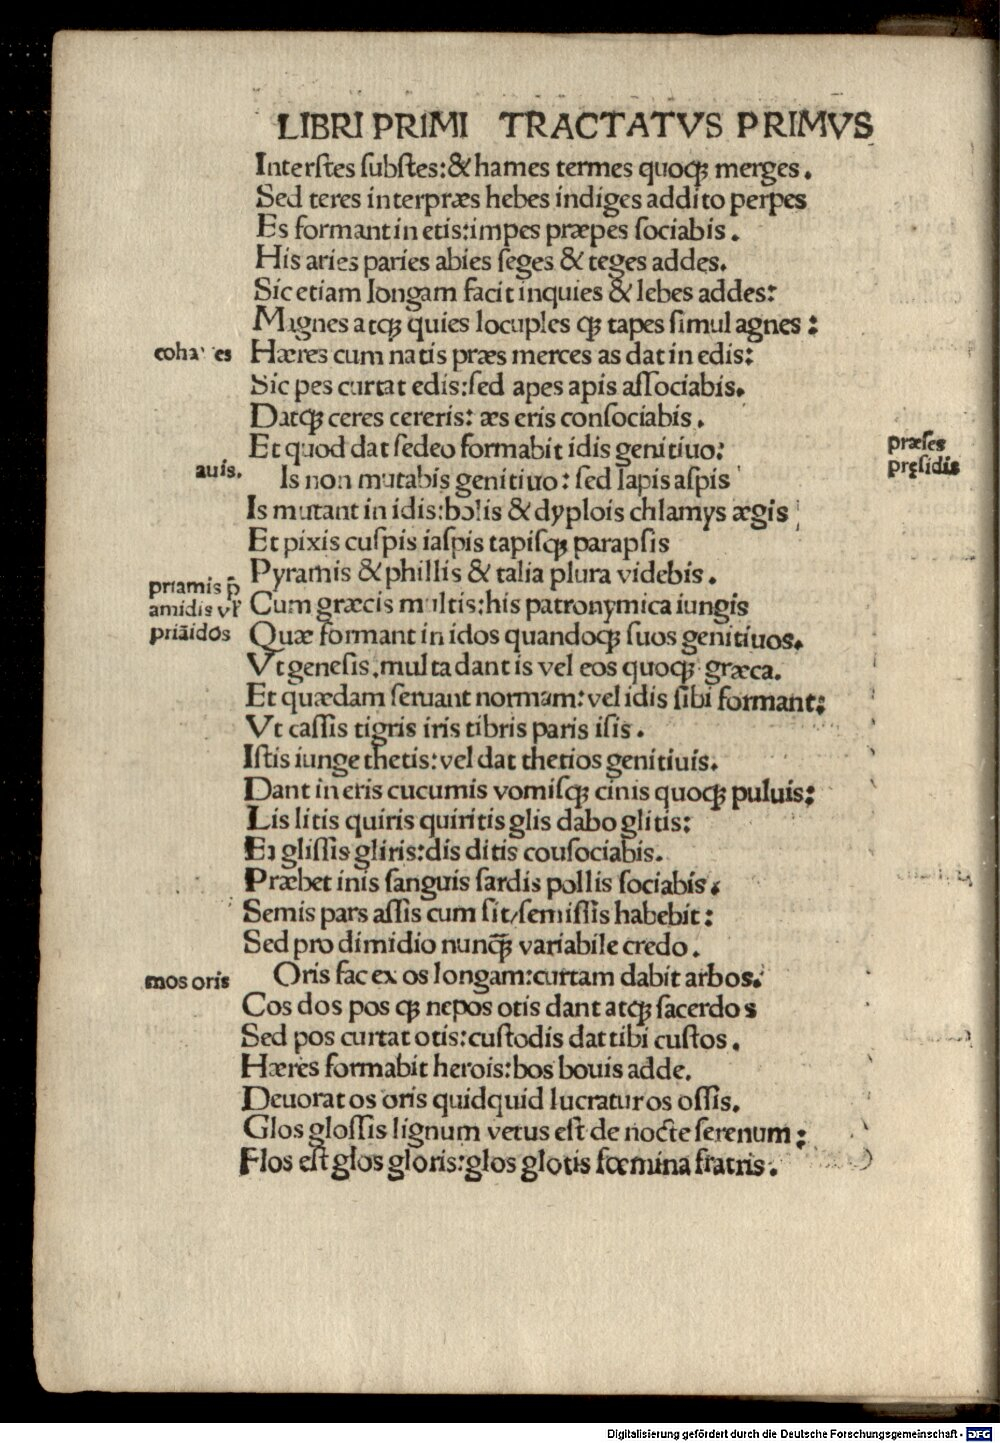 LIBRI PRIMI TRACTATVS PRIMVS
Interſtes ſubſtes:& hames termes quoqꝫ merges.
Sed teres interpræs hebes indiges addito perpes
Es formant in etis:impes præpes ſociabis.
His aries paries abies ſeges & teges addes.
Sic etiam longam facit inquies & lebes addes:
Magnes atqꝫ quies locuples qꝫ tapes ſimul agnes:
Hæres cum natis præs merces as dat in edis:
Sic pes curtat edis:ſed apes apis aſſociabis.
Datqꝫ ceres cereris: æs eris conſociabis.
Et quod dat ſedeo formabit idis genitiuo:
præſes
pręſidis
auis.
Is non mutabis genitiuo: ſed lapis aſpis
Is mutant in idis:bolis & dyplois chlamys ægis
Et pixis cuſpis iaſpis tapiſqꝫ parapſis
Pyramis & phillis & talia plura videbis.
priamis p̄
amidis vƚ
priāidos
Cum græcis multis:his patronymica iungis
Quæ formant in idos quandoqꝫ ſuos genitiuos.
Vt geneſis.multa dant is vel eos quoqꝫ græca.
Et quædam ſeruant normam: vel idis ſibi formant:
Vt caſſis tigris iris tibris paris iſis.
Iſtis iunge thetis: vel dat thetios genitiuis.
Dant in eris cucumis vomiſqꝫ cinis quoqꝫ puluis:
Lis litis quiris quiritis glis dabo glitis:
Et gliſſis gliris:dis ditis couſociabis.
Præbet inis ſanguis ſardis pollis ſociabis.
Semis pars aſſis cum ſit/ſemiſſis habebit:
Sed pro dimidio nunqꝫ̄ variabile credo.
mos oris
Oris fac ex os longam:curtam dabit arbos.
Cos dos pos qꝫ nepos otis dant atqꝫ ſacerdos
Sed pos curtat otis:cuſtodis dat tibi cuſtos.
Hæres formabit herois:bos bouis adde.
Deuorat os oris quidquid lucratur os oſſis.
Glos gloſſis lignum vetus eſt de nocte ſerenum:
Flos eſt glos gloris:glos glotis fœmina fratris.
Digitalisierung gefördert durch die Deutsche Forschungsgemeinschaft - DFG